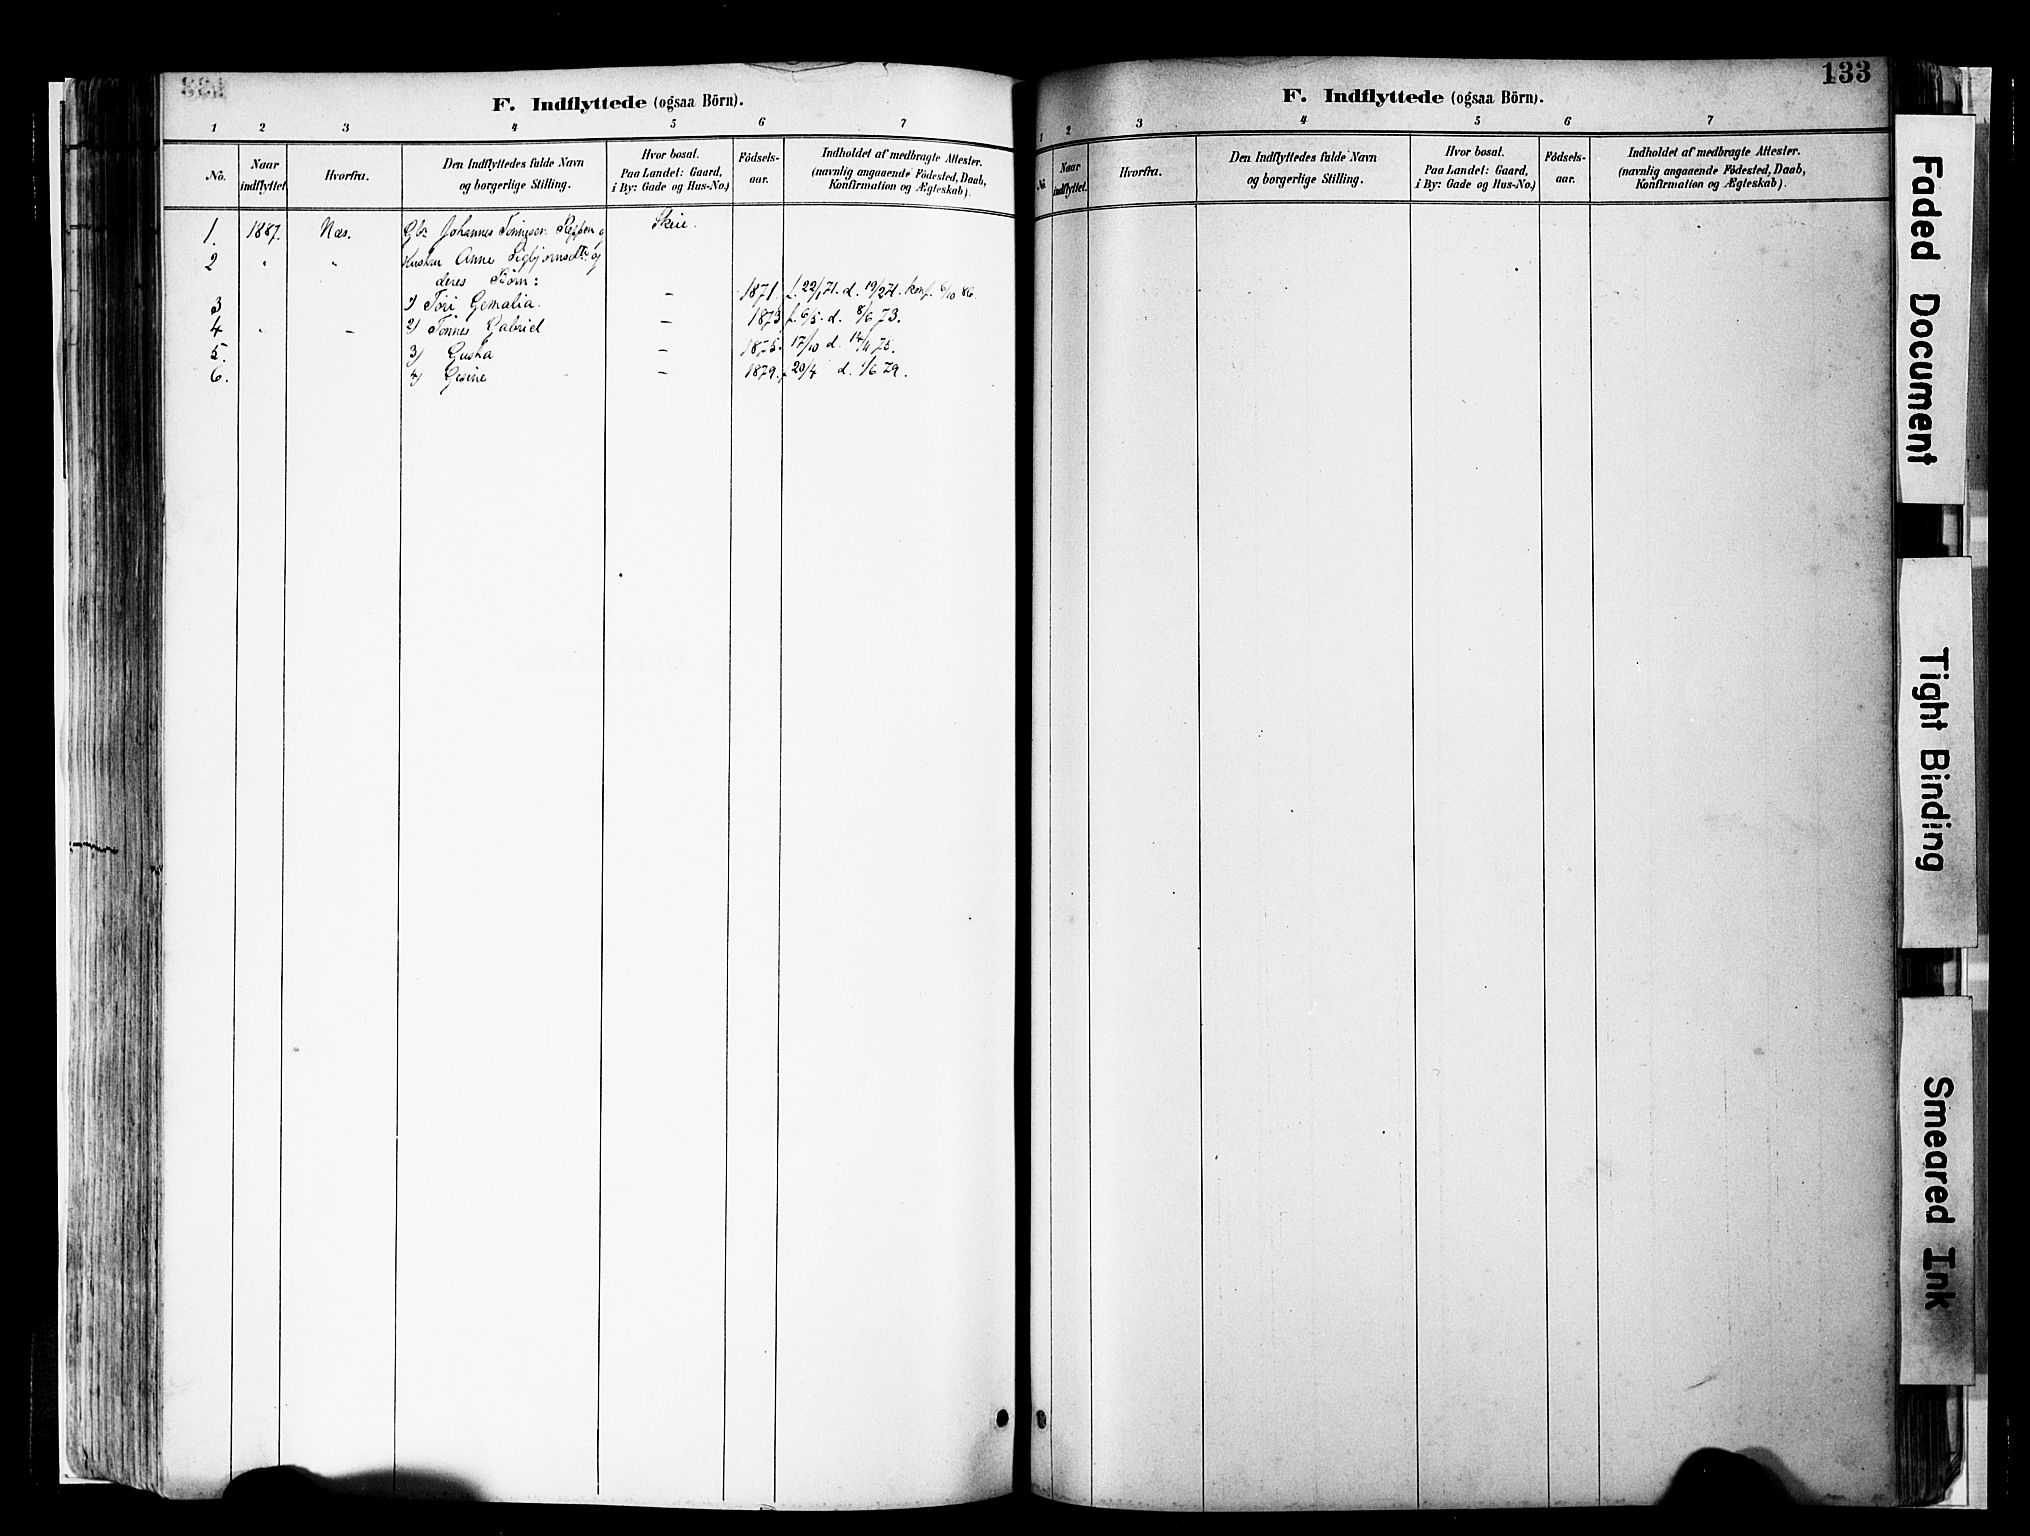 F. Indflyttede (ogsaa Börn).
1 2 3 4 5 6 7
No. Naar indflyttet. Hvorfra. Den Indflyttedes fulde Navn og borgerlige Stilling. Hvor bosat. Paa Landet: Gaard, i By: Gade og Hus-No.) Födsels-aar. Indholdet af medbragte Attester. (navnlig angaaende Födested, Daab, Konfirmation og Ægteskab).
1. 1887. Næs. Johannes Tønnesen og Skeie.
2 " " Hustru Anne Sigbjørnsdtr. og
deres Børn:
3 1) Tori Gemalia. – 1871. f. 22/1 71. d. 19/2 71. konf. 6/10 86.
4 " – 2) Tønnes Gabriel – 1873 f. 6/5. d. 8/6 73.
5. 3) Guska – 1875. 17/10 d. 14/11 75.
6. 4) Gesine – 1879. f 20/4 d. 1/6 79.
133
F. Indflyttede (ogsaa Börn).
1 2 3 4 5 6 7
No. Naar indflyttet. Hvorfra. Den Indflyttedes fulde Navn og borgerlige Stilling. Hvor bosat. Paa Landet: Gaard, i By: Gade og Hus-No.) Födsels-aar. Indholdet af medbragte Attester. (navnlig angaaende Födested, Daab, Konfirmation og Ægteskab).
Faded Document
Tight Binding
Smeared Ink